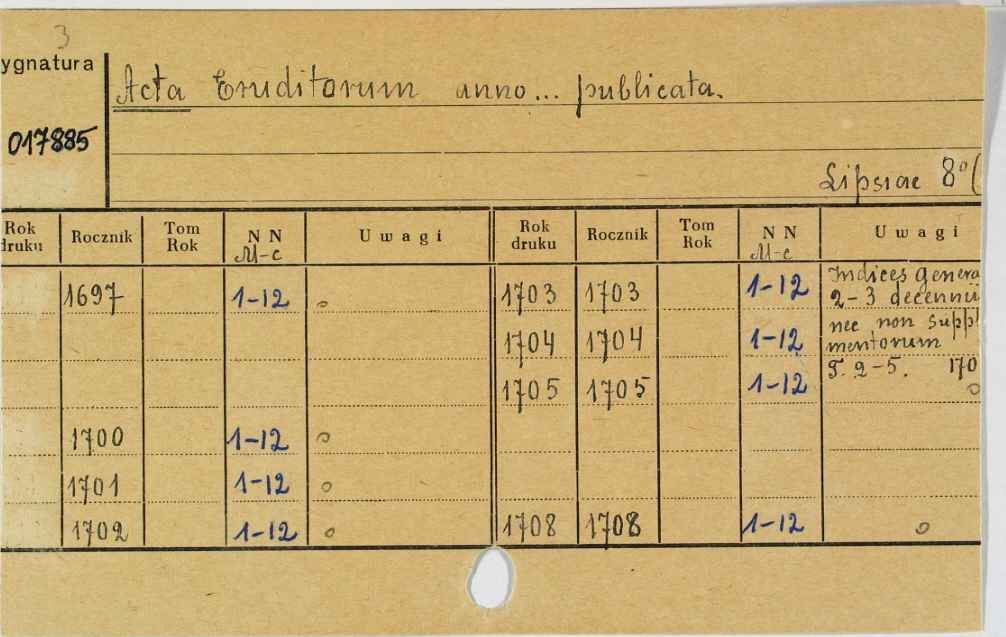 3
ygnatura
Acta Eruditorum anno... publicata.
017885
Lipsiae 8°(
Rok druku Rocznik Tom Rok NN M-c Uwagi Rok druku Rocznik Tom Rok NN M-c Uwagi
1697 1-12 o 1703 1703 1-12 Indices genera
2-3 decennii
1704 1704 1-12 nec non suppl
mentorum
1705 1705 1-12 T. 2-5. 170
o
1700 1-12 o
1701 1-12 o
1702 1-12 o 1708 1708 1-12 o